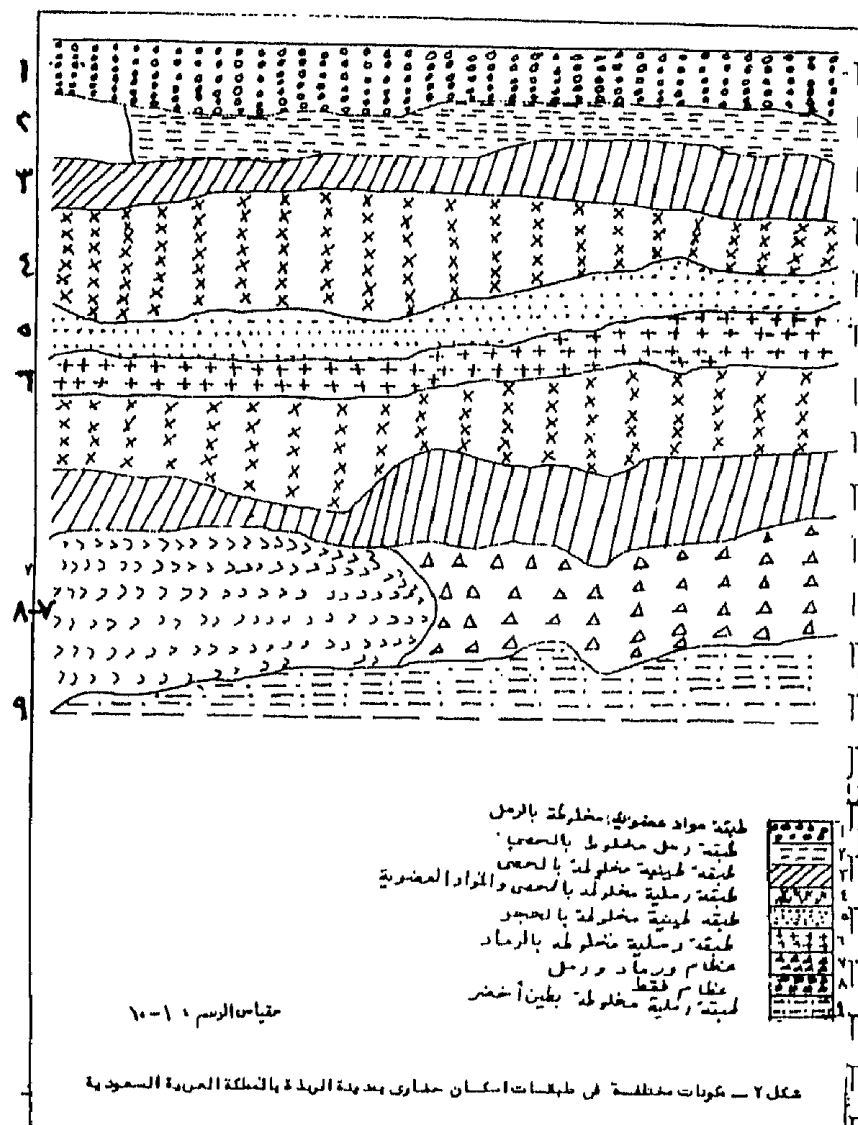 ١
٢
٣
٤
٥
٦
٨-٧
٩
طبقة مواد عضوية مخلوطة بالرمل
١
طبقة رمل مخلوط بالحصى
٢
طبقة طينية مخلوطة بالحصى
٣
طبقة رملية مخلوطة بالحصى والمواد العضوية
٤
طبقة طينية مخلوطة بالحجر
٥
طبقة رملية مخلوطة بالرماد
٦
عظام ورماد ورمل
٧
عظام فقط
٨
طبقة رملية مخلوطة بطين أخضر
٩
مقياس الرسم : ١-١٠
شكل ٢ — مكونات مختلفة فى طبقات اسكان حضارى بمدينة الربذة بالمملكة العربية السعودية